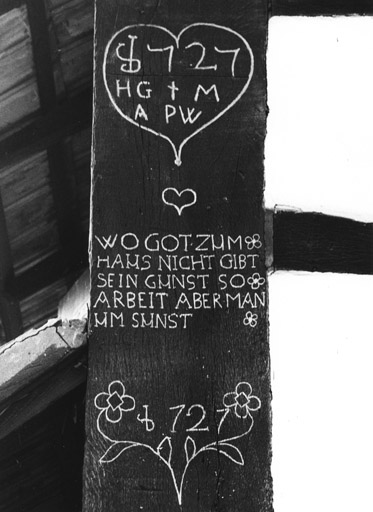 1727
HG † M
A PW
WO GOT·ZUM
HAUS NICHT GIBT
SEIN GUNST SO
ARBEIT ABER MAN
UM SUNST
1727